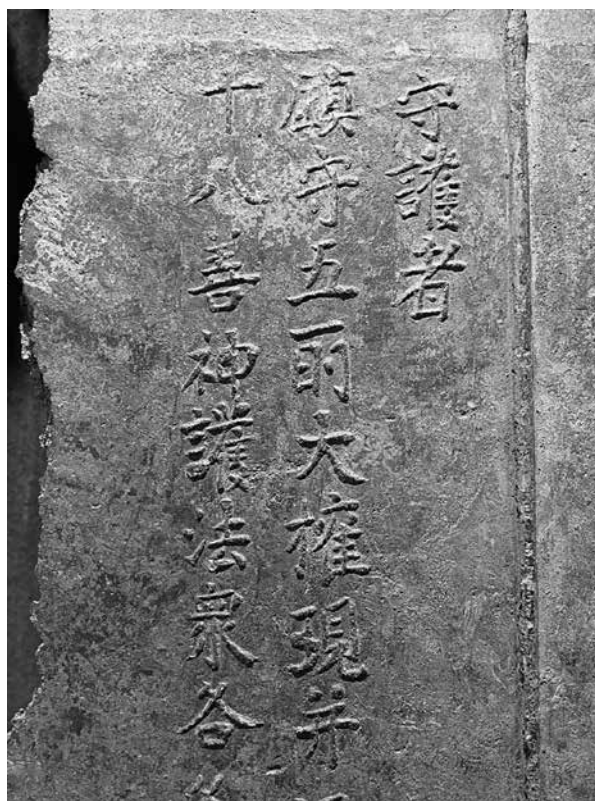 守護者
鎮守五所大權現并
十八善神護法衆各